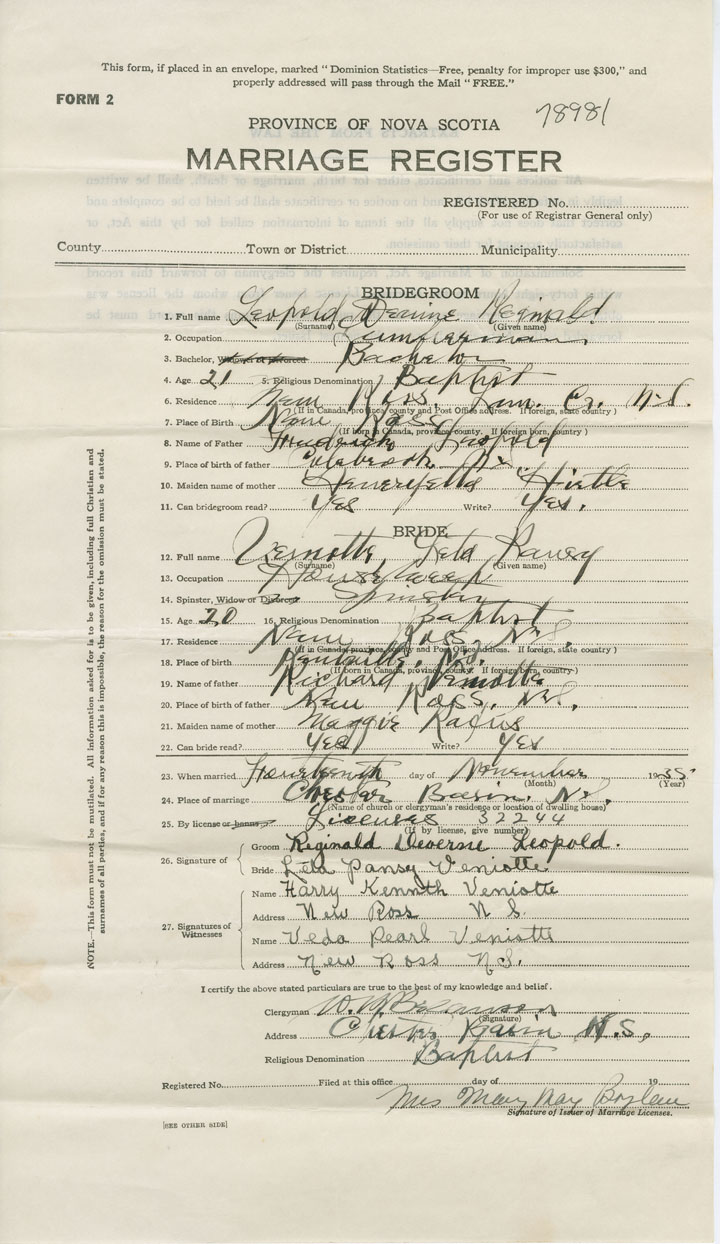 This form, if placed in an envelope, marked "Dominion Statistics—Free, penalty for improper use $300," and
properly addressed will pass through the Mail "FREE."
FORM 2
78981
PROVINCE OF NOVA SCOTIA
MARRIAGE REGISTER
REGISTERED No.
(For use of Registrar General only)
County Town or District Municipality
BRIDEGROOM
1. Full name Leopold Reginald
(Surname) (Given name)
2. Occupation Lumberman
3. Bachelor, Widower or divorced Bachelor
4. Age 21 5. Religious Denomination Baptist
6. Residence New Ross Lun. Co. N.S.
(If in Canada, province, county and Post Office address. If foreign, state country)
7. Place of Birth New Ross
(If born in Canada, province, county. If foreign born, country)
8. Name of Father Fredrick Leopold
9. Place of birth of father
10. Maiden name of mother
11. Can bridegroom read? Yes Write? Yes.
BRIDE
12. Full name Leta
(Surname) (Given name)
13. Occupation
14. Spinster, Widow or Divorced Spinster
15. Age 20 16. Religious Denomination Baptist
17. Residence New Ross, N.S.
(If in Canada, province, county and Post Office address. If foreign, state country)
18. Place of birth Kentville, N.S.
(If born in Canada, province, county. If foreign born, country)
19. Name of father Richard
20. Place of birth of father New Ross, N.S.
21. Maiden name of mother Maggie
22. Can bride read? Yes Write? Yes
23. When married Fourteenth day of November 1935
(Month) (Year)
24. Place of marriage Chester Basin, N.S.
(Name of church or clergyman's residence or location of dwelling house)
25. By license or banns License 32244
(If by license, give number)
26. Signature of Groom Reginald Deverne Leopold.
Bride Leta Pansy Veniotte
27. Signatures of Witnesses
Name Harry Kennth Veniotte
Address New Ross N S.
Name Veda Pearl Veniotte
Address New Ross N.S.
I certify the above stated particulars are true to the best of my knowledge and belief.
Clergyman
(Signature)
Address Chester Basin N.S.,
Religious Denomination Baptist
Registered No. Filed at this office day of 19
Mrs Mary
Signature of Issuer of Marriage Licenses.
[SEE OTHER SIDE]
NOTE.—This form must not be mutilated. All information asked for is to be given, including full Christian and
surnames of all parties, and if for any reason this is impossible, the reason for the omission must be stated.